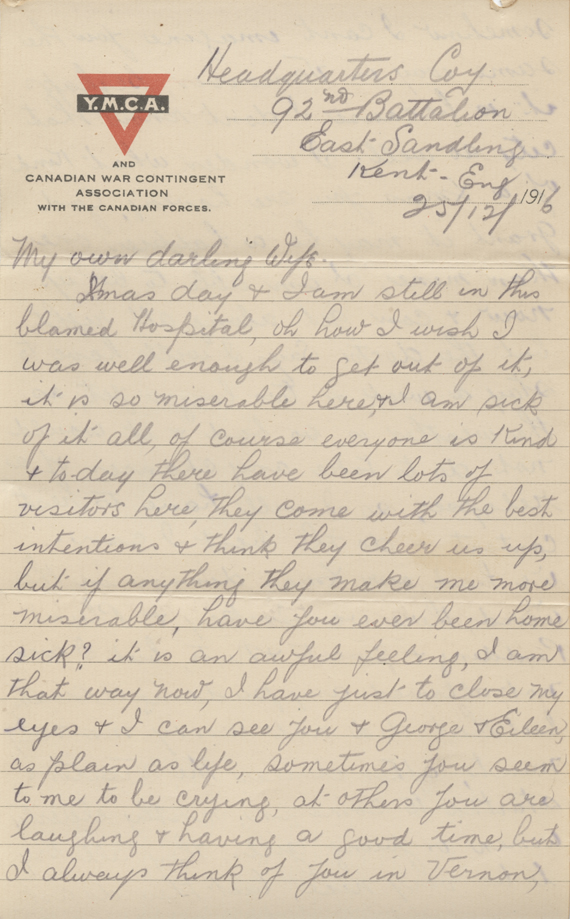 Headquarters Coy
92nd Battalion
East Sandling
Kent - Eng
25/12/1916
Y.M.C.A.
AND
CANADIAN WAR CONTINGENT
ASSOCIATION
WITH THE CANADIAN FORCES.
My own darling Wife.
Xmas day & I am still in this
blamed Hospital, oh how I wish I
was well enough to get out of it,
it is so miserable here, & I am sick
of it all, of course everyone is kind
& to-day there have been lots of
visitors here, they come with the best
intentions & think they cheer us up,
but if anything they make me more
miserable, have you ever been home
sick? it is an awful feeling, I am
that way now, I have just to close my
eyes & I can see you & George & Eileen,
as plain as life, sometimes you seem
to me to be crying, at others you are
laughing & having a good time, but
I always think of you in Vernon,